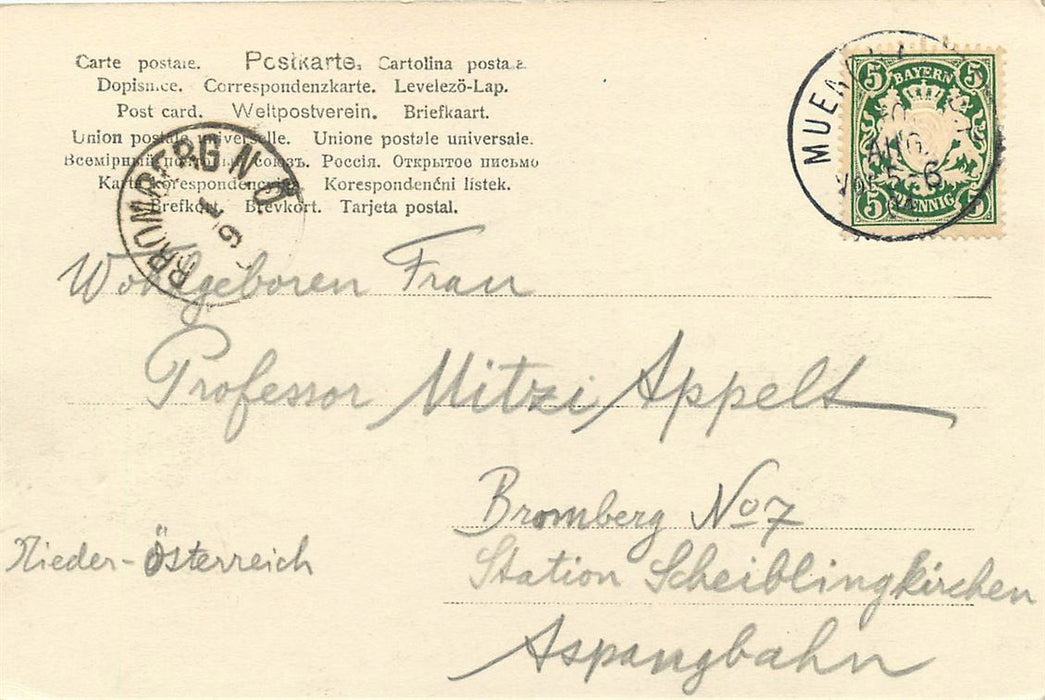 Carte postale. Postkarte. Cartolina postale.
Dopisnice. Correspondenzkarte. Levelező-Lap.
Post card. Weltpostverein. Briefkaart.
Union postale universelle. Unione postale universale.
Всемірный почтовый союзъ. Россія. Открытое письмо
Karta korespondencyjna. Korespondenční lístek.
Brefkort. Brevkort. Tarjeta postal.
BROMBERG N Ö
5 BAYERN 5
5 PFENNIG 5
AUG.
5-6
Wohlgeboren Frau
Professor Mitzi Appelt
Bromberg No 7
Nieder-Österreich
Station Scheiblingkirchen
Aspangbahn